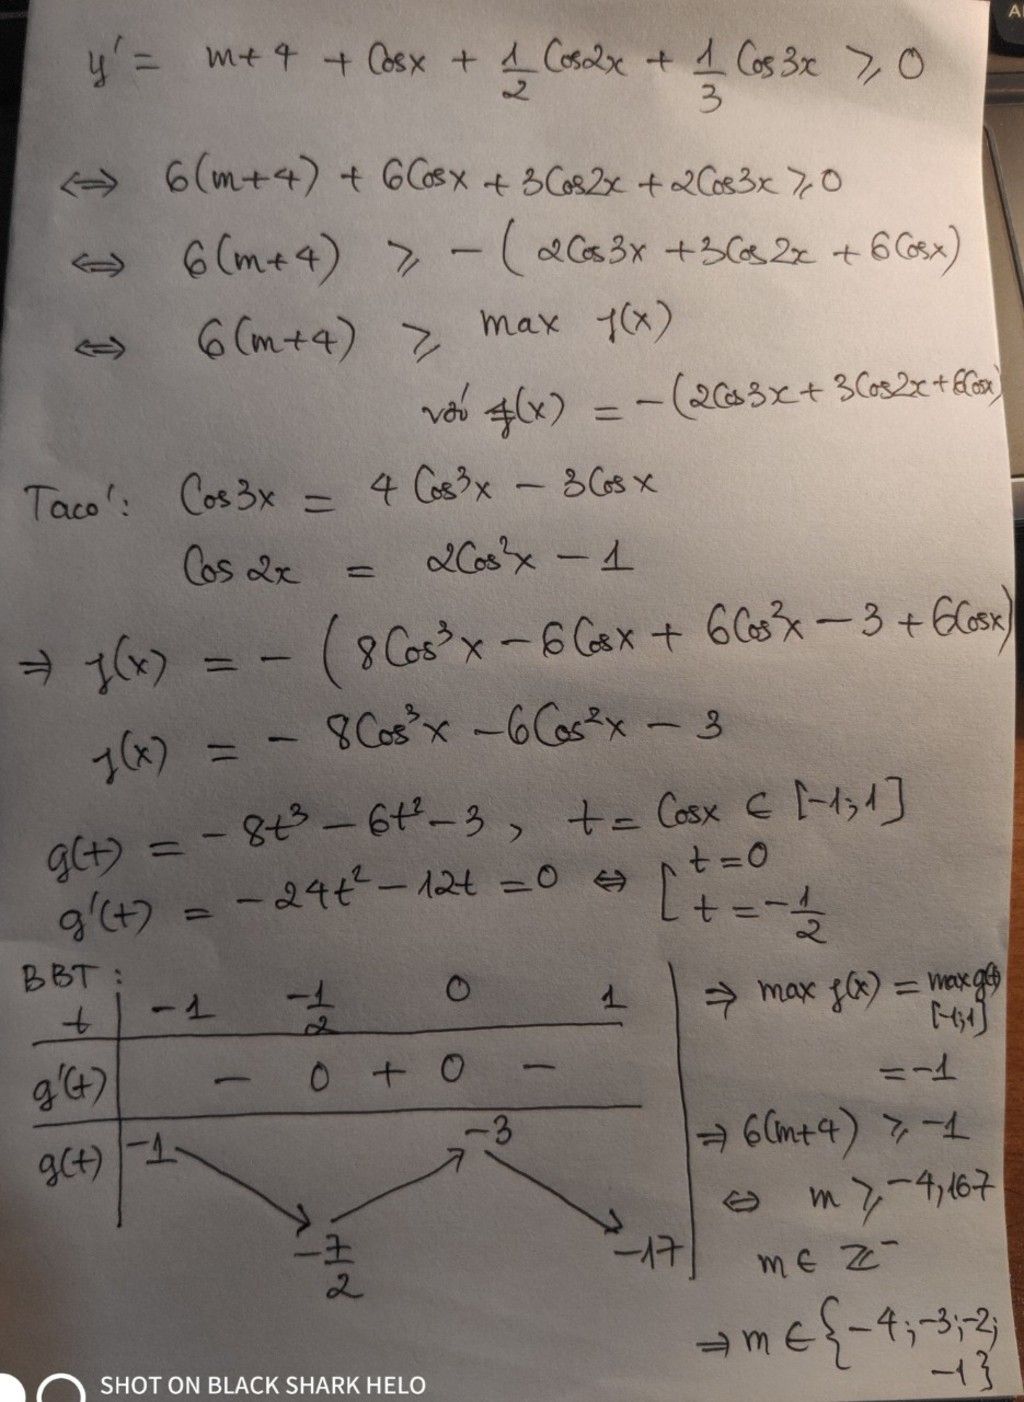 y' = m+4 + Cosx + 1/2 Cos2x + 1/3 Cos3x ⩾ 0
⇔ 6(m+4) + 6Cosx + 3Cos2x + 2Cos3x ⩾ 0
⇔ 6(m+4) ⩾ -( 2Cos3x + 3Cos2x + 6Cosx)
⇔ 6(m+4) ⩾ max f(x)
với f(x) = -(2Cos3x + 3Cos2x + 6Cosx)
Ta có: Cos3x = 4Cos³x - 3Cosx
Cos2x = 2Cos²x - 1
⇒ f(x) = - (8Cos³x - 6Cosx + 6Cos²x - 3 + 6Cosx)
f(x) = - 8Cos³x - 6Cos²x - 3
g(t) = -8t³ - 6t² - 3, t = Cosx ∈ [-1;1]
g'(t) = -24t² - 12t = 0 ⇔ [ t=0
t = -1/2
BBT:
t -1 -1/2 0 1
g'(t) - 0 + 0 -
g(t) -1 -7/2 -3 -17
⇒ max f(x) = max g(t)
[-1;1]
= -1
⇒ 6(m+4) ⩾ -1
⇔ m ⩾ -4,167
m ∈ Z⁻
⇒ m ∈ {-4;-3;-2;
-1}
SHOT ON BLACK SHARK HELO